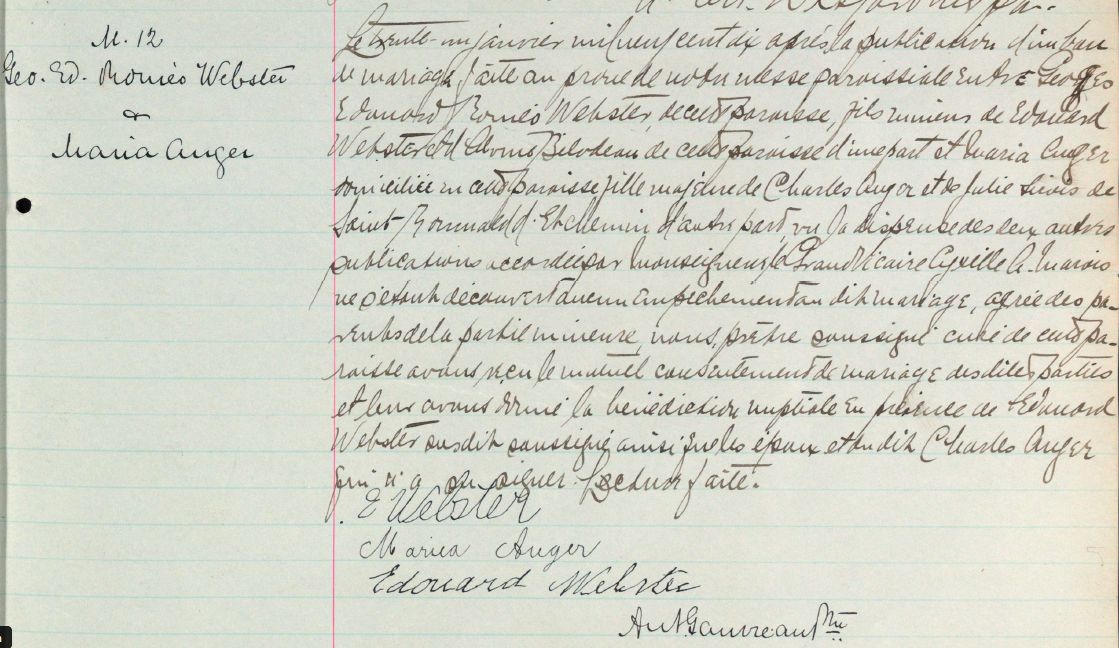 M. 12
Geo. Ed. Roméo Webster
&
Maria Auger
Le trente-un janvier mil neuf cent dix après la publication d'un ban
de mariage faite au prône de notre messe paroissiale entre Georges
Edouard Roméo Webster, de cette paroisse, fils mineur de Edouard
Webster et d'Alvina Bilodeau de cette paroisse d'une part et Maria Auger
domiciliée en cette paroisse fille majeure de Charles Auger et de Julie de
Saint-Romuald d'Etchemin d'autre part, vu la dispense des deux autres
publications accordée par Monseigneur le Grand Vicaire Cyrille A. Marois
ne s'étant découvert aucun empêchement au dit mariage, agréé des pa-
rents de la partie mineure, nous, prêtre soussigné curé de cette pa-
roisse avons reçu le mutuel consentement de mariage des dites parties
et leur avons donné la bénédiction nuptiale en présence de Edouard
Webster susdit soussigné ainsi que les époux et du dit Charles Auger
qui n'a su signer. Lecture faite.
E Webster
Maria Auger
Edouard Webster
Ant. Gauvreau Ptre